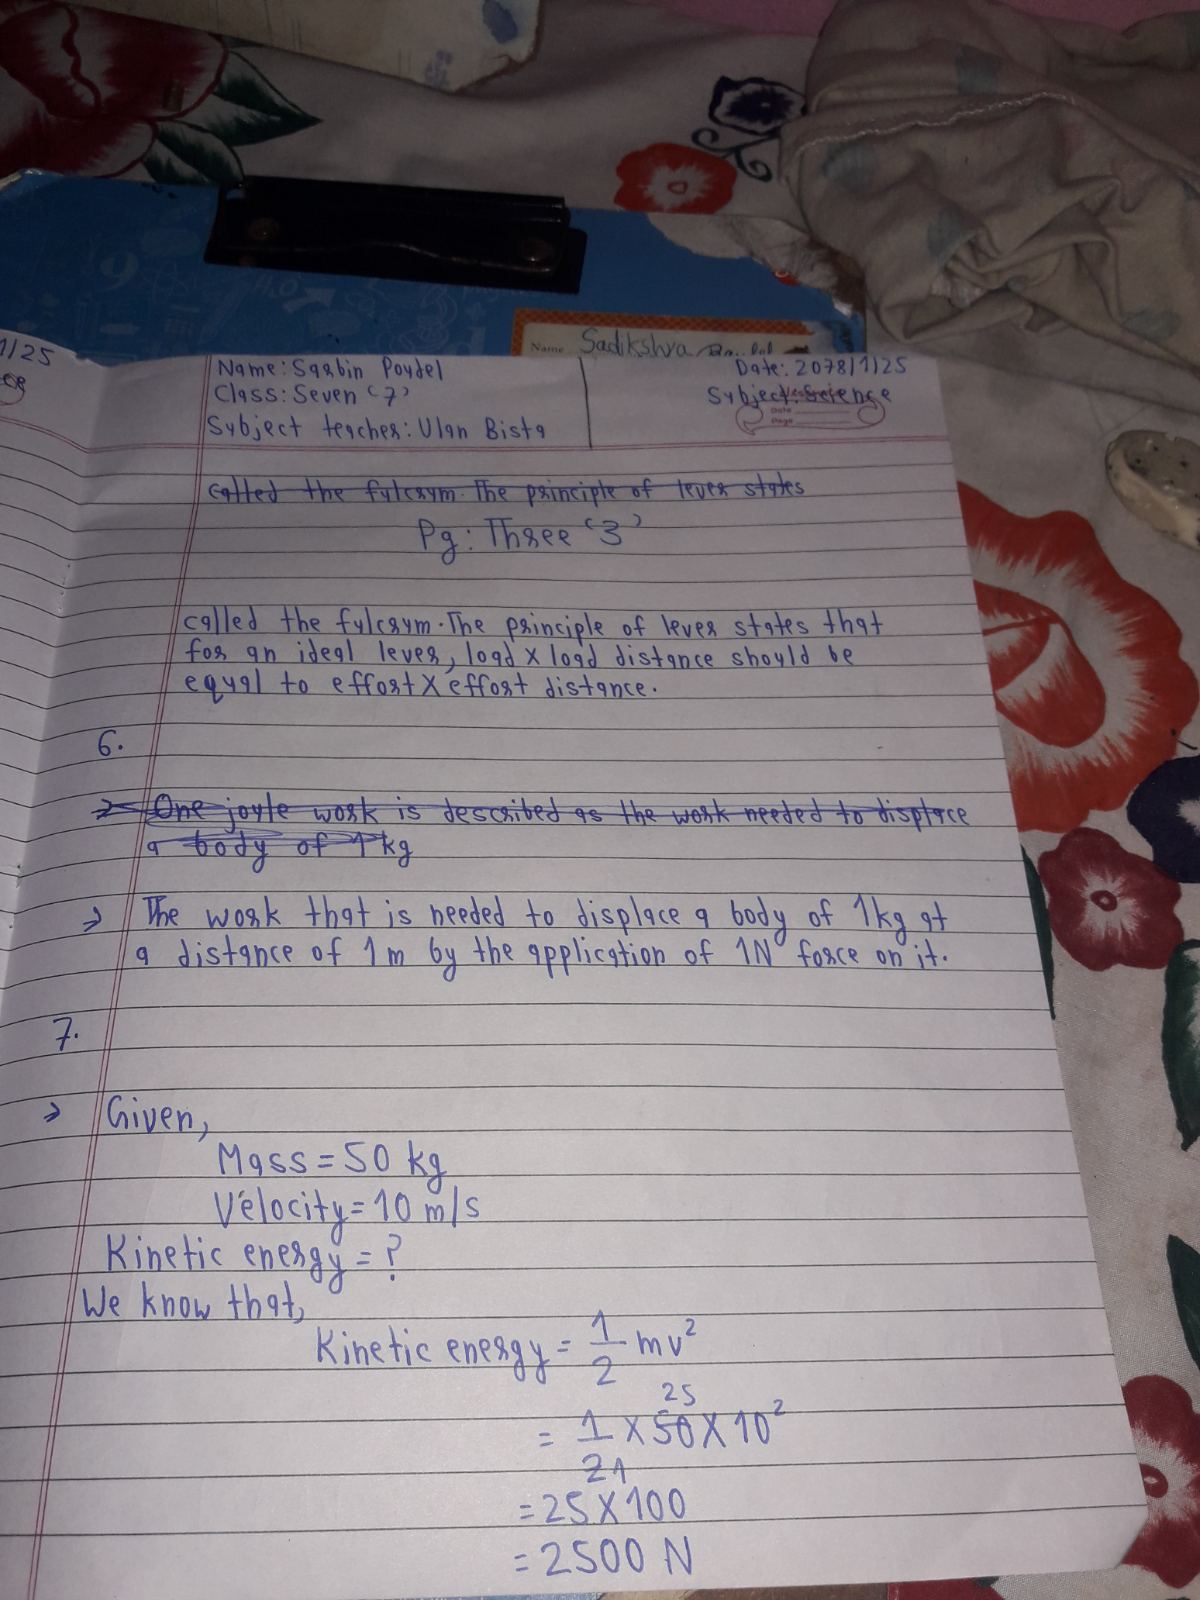 1/25
Name Sadikshya
Name: Sarbin Poudel
Class: Seven '7'
Subject teacher: Ulan Bista
Date: 2078/1/25
Subject: Science
Date
Page
called the fulcrum. The principle of lever states
Pg: Three '3'
called the fulcrum. The principle of lever states that
for an ideal lever, load X load distance should be
equal to effort X effort distance.
6.
→ One joule work is described as the work needed to displace
a body of 1 kg
→ The work that is needed to displace a body of 1kg at
a distance of 1 m by the application of 1N force on it.
7.
→ Given,
Mass = 50 kg
Velocity = 10 m/s
Kinetic energy = ?
We know that,
Kinetic energy = 1/2 mv²
25
= 1/2 X 50 X 10²
1
= 25 X 100
= 2500 N